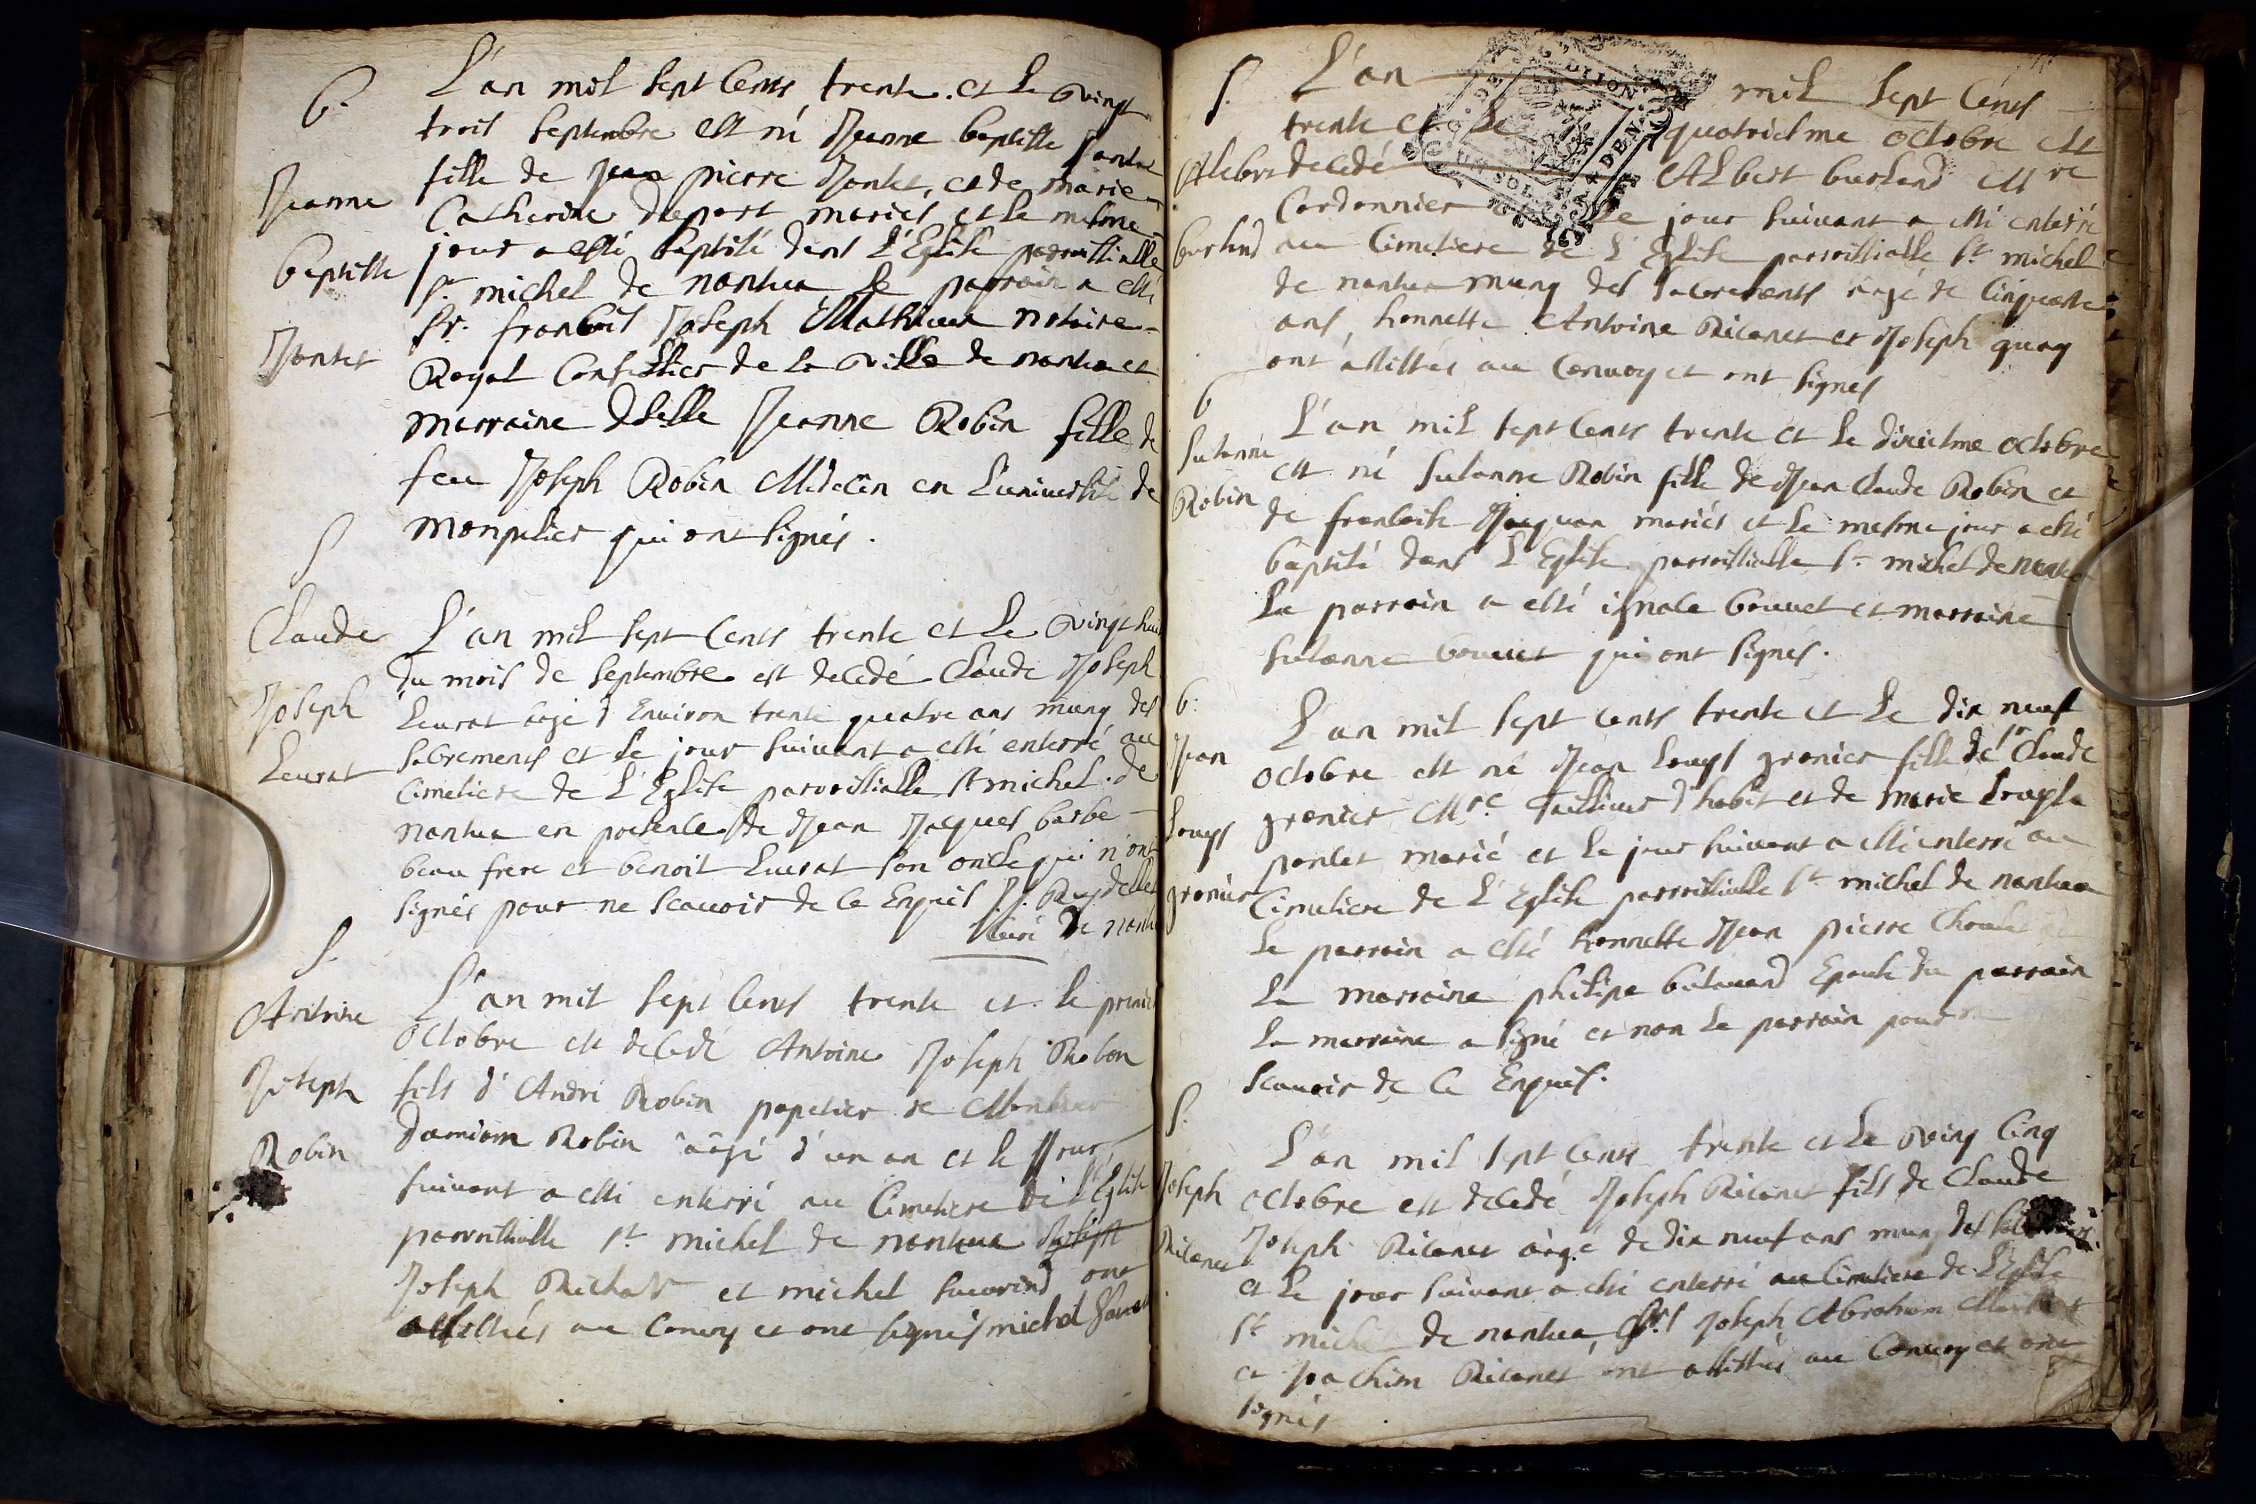 B.
L'an mil sept Cents trente. et le vingt
trois septembre est né Jeanne baptiste
fille de Jean pierre Jantet, et de marie
Catherine Duport mariés et le mesme
jour a esté baptisé dans l'Eglise parroissialle
st michel de nantua Le parrain a esté
Sr. francois Joseph Mathieu notaire
Royal Conseillier de la ville de nantua et
marraine dselle Jeanne Robin fille de
feu Joseph Robin Medecin en L'université de
monpelier qui ont signés.
Jeanne
baptiste
Jantet
S
Claude
Joseph
Leurat
L'an mil sept Cents trente et Le vingt huit
du mois de septembre est decedé Claude Joseph
Leurat âgé d'Environ trente quatre ans muny des
sacrements et le jour suivant a esté enterré au
Cimetiere de L'Eglise parroissialle st michel de
nantua en presence de Jean Jacques barbe
beau frere et benoit Leurat son oncle qui n'ont
signés pour ne scavoir de ce Enquis
Curé de nantua
S.
Antoine
Joseph
Robin
L'an mil sept Cents trente et le premier
octobre est decedé Antoine Joseph Robin
fils d'André Robin papetier
Robin aâgé d'un an et le jour
suivant a esté enterré au Cimetiere de l'Eglise
parroissialle st michel de nantua
Joseph Richard et michel sauvrind ont
assistés au Convoy et ont signés michel
S.
Albert
burland
L'an mil sept Cents
trente et le quatriesme octobre est
decedé Albert burland Mre
Cordonnier et le jour suivant a esté enterré
au Cimetiere de L'Eglise parroissialle st michel
de nantua muny des sacrements âgé de Cinquante
ans, honnette Antoine Ricanet et Joseph guay
ont assistés au Convoy et ont signés
B
Susanne
Robin
L'an mil sept Cents trente et le dixiesme octobre
est né Susanne Robin fille de Jean Claude Robin et
de francoise Jacquan mariés et le mesme jour a esté
baptisé dans L'Eglise parroissialle st michel de nantua
Le parrain a esté ignace bouvet et marraine
Susanne bouvet qui ont signés.
B.
Jean
Louys
grenier
L'an mil sept cents trente et Le dix neuf
octobre est né Jean Louys grenier fille de sr Claude
grenier Mre Tailleur d'habit et de marie
pantet marié et le jour suivant a esté enterré au
Cimetiere de L'Eglise parroissialle st michel de nantua
Le parrain a esté honnette Jean pierre
La marraine philipe Epouse du parrain
La marraine a signé et non le parrain pour ne
scauoir de ce Enquis.
S.
Joseph
Ricanet
L'an mil sept Cents trente et Le ving Cinq
octobre est decedé Joseph Ricanet fils de Claude
Joseph Ricanet âagé de dix neuf ans muny des
et le jour suivant a esté enterré au Cimetiere de L'Eglise
st michel de nantua, Srs Joseph Abraham
et Joachim Ricanet ont assistés au Convoy et ont
signés